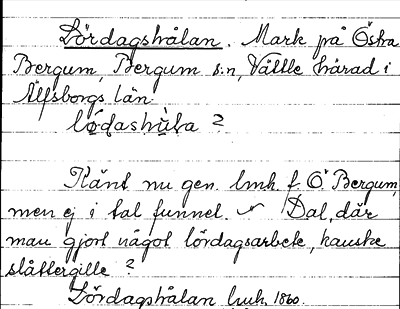 Lördagshålan. Mark på Östra
Bergum, Bergum s:n, Vättle härad i
Älfsborgs län.
lǫdashùla ?
Känt nu gen. lmk. f. Ö. Bergum,
men ej i tal funnet. Dal, där
man gjort något lördagsarbete, kanske
slåttergille ?
Lördagshålan lmk. 1860.